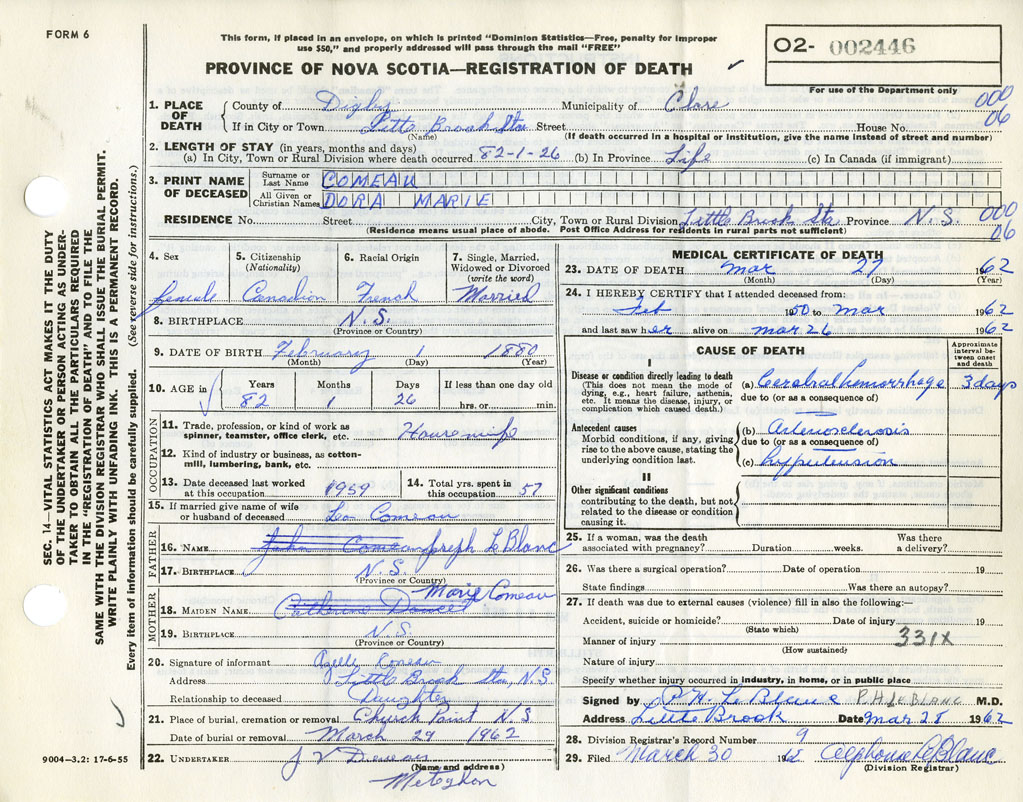 FORM 6
This form, if placed in an envelope, on which is printed "Dominion Statistics—Free, penalty for improper
use $50," and properly addressed will pass through the mail "FREE"
PROVINCE OF NOVA SCOTIA—REGISTRATION OF DEATH ✓
02- 002446
For use of the Department only
1. PLACE OF DEATH { County of Digby Municipality of Clare 000
If in City or Town Little Brook Sta Street House No. 06
(Name) (If death occurred in a hospital or institution, give the name instead of street and number)
2. LENGTH OF STAY (in years, months and days)
(a) In City, Town or Rural Division where death occurred 82-1-26 (b) In Province Life (c) In Canada (if immigrant)
3. PRINT NAME OF DECEASED
Surname or Last Name COMEAU
All Given or Christian Names DORA MARIE
RESIDENCE No. Street City, Town or Rural Division Little Brook Sta Province N.S. 000
(Residence means usual place of abode. Post Office Address for residents in rural parts not sufficient) 06
4. Sex 5. Citizenship (Nationality) 6. Racial Origin 7. Single, Married, Widowed or Divorced (write the word)
female Canadian French Married
8. BIRTHPLACE N.S.
(Province or Country)
9. DATE OF BIRTH February 1 1880
(Month) (Day) (Year)
10. AGE in Years Months Days If less than one day old
✓ 82 1 26 hrs. or min.
OCCUPATION
11. Trade, profession, or kind of work as spinner, teamster, office clerk, etc. Housewife
12. Kind of industry or business, as cotton-mill, lumbering, bank, etc.
13. Date deceased last worked at this occupation 1959 14. Total yrs. spent in this occupation 57
15. If married give name of wife or husband of deceased Leo Comeau
FATHER
16. NAME John Comeau Joseph LeBlanc
17. BIRTHPLACE N.S.
(Province or Country)
MOTHER
18. MAIDEN NAME Catherine Marie Comeau
19. BIRTHPLACE N.S.
(Province or Country)
20. Signature of informant Comeau
Address Little Brook Sta, N.S.
Relationship to deceased Daughter
21. Place of burial, cremation or removal Church Point N S
Date of burial or removal March 29 1962
22. UNDERTAKER J V
(Name and address)
Meteghan
MEDICAL CERTIFICATE OF DEATH
23. DATE OF DEATH Mar 27 1962
(Month) (Day) (Year)
24. I HEREBY CERTIFY that I attended deceased from:
Feb to Mar 1962
and last saw her alive on Mar 26 1962
CAUSE OF DEATH
Approximate interval between onset and death
I
Disease or condition directly leading to death
(This does not mean the mode of dying, e.g., heart failure, asthenia, etc. It means the disease, injury, or complication which caused death.)
(a) Cerebral hemorrhage 3 days
due to (or as a consequence of)
Antecedent causes
Morbid conditions, if any, giving rise to the above cause, stating the underlying condition last.
(b) Arteriosclerosis
due to (or as a consequence of)
(c) hypertension
II
Other significant conditions
contributing to the death, but not related to the disease or condition causing it.
25. If a woman, was the death associated with pregnancy? Duration weeks. Was there a delivery?
26. Was there a surgical operation? Date of operation 19
State findings Was there an autopsy?
27. If death was due to external causes (violence) fill in also the following:—
Accident, suicide or homicide? Date of injury 19
(State which)
Manner of injury 331X
(How sustained)
Nature of injury
Specify whether injury occurred in industry, in home, or in public place
Signed by P.H. LeBlanc P.H. LE BLANC M.D.
Address Little Brook Date Mar 28 1962
28. Division Registrar's Record Number 9
29. Filed March 30 1962 Alphonse LeBlanc
(Division Registrar)
SEC. 14—VITAL STATISTICS ACT MAKES IT THE DUTY
OF THE UNDERTAKER OR PERSON ACTING AS UNDER-
TAKER TO OBTAIN ALL THE PARTICULARS REQUIRED
IN THE "REGISTRATION OF DEATH" AND TO FILE THE
SAME WITH THE DIVISION REGISTRAR WHO SHALL ISSUE THE BURIAL PERMIT.
WRITE PLAINLY WITH UNFADING INK. THIS IS A PERMANENT RECORD.
Every item of information should be carefully supplied. (See reverse side for instructions.)
✓
9004-3.2: 17-6-55